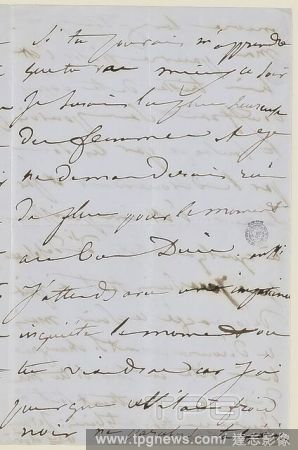 Si tu pouvais m'apprendre
que tu vas mieux ce soir
je serais la plus heureuse
des femmes et je
ne demanderais rien
de plus pour le moment
au bon Dieu. aussi
J'attends avec une impatience
inquiète le moment où
tu viendras car j'ai
peur que
noir ne
www.tpgnews.com 達志影像